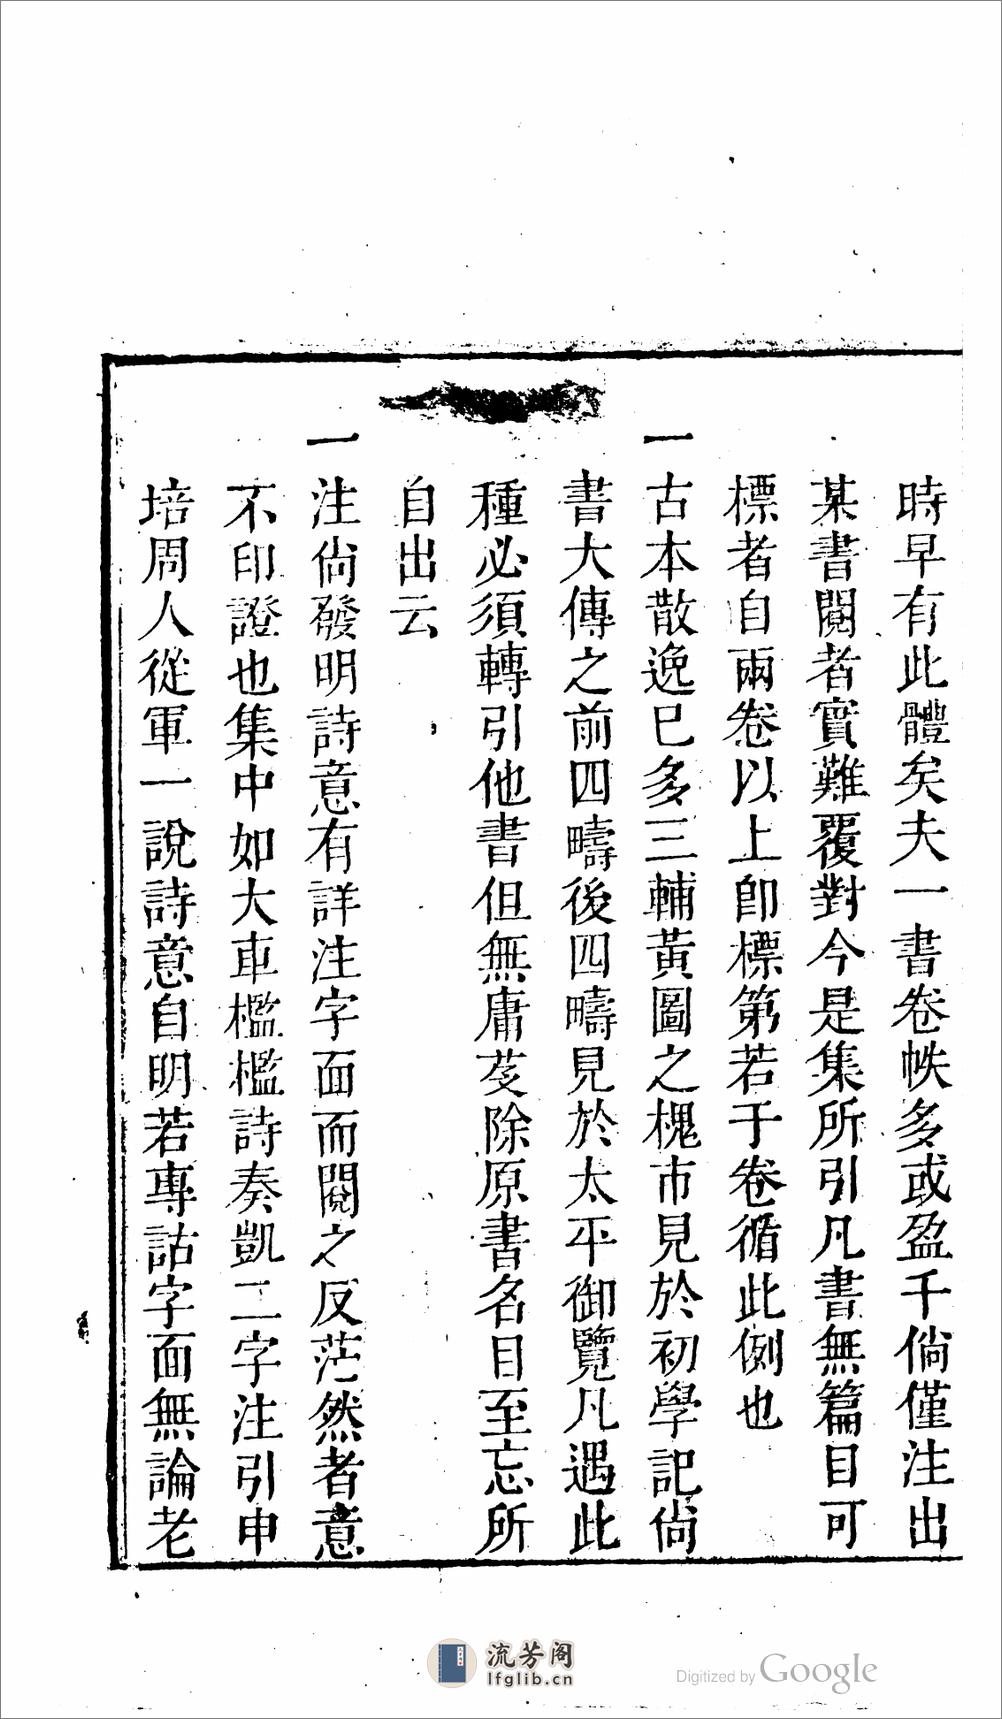 時早有此體矣夫一書卷帙多或盈千倘僅注出
某書閱者實難覆對今是集所引凡書無篇目可
標者自兩卷以上卽標第若干卷循此例也
一古本散逸已多三輔黃圖之槐市見於初學記尙
書大傳之前四疇後四疇見於太平御覽凡遇此
種必須轉引他書但無庸芟除原書名目至忘所
自出云
一注尙發明詩意有詳注字面而閱之反茫然者意
不印證也集中如大車檻檻詩奏凱二字注引申
培周人從軍一說詩意自明若專詁字面無論老
流芳阁
lfglib.cn
Digitized by Google